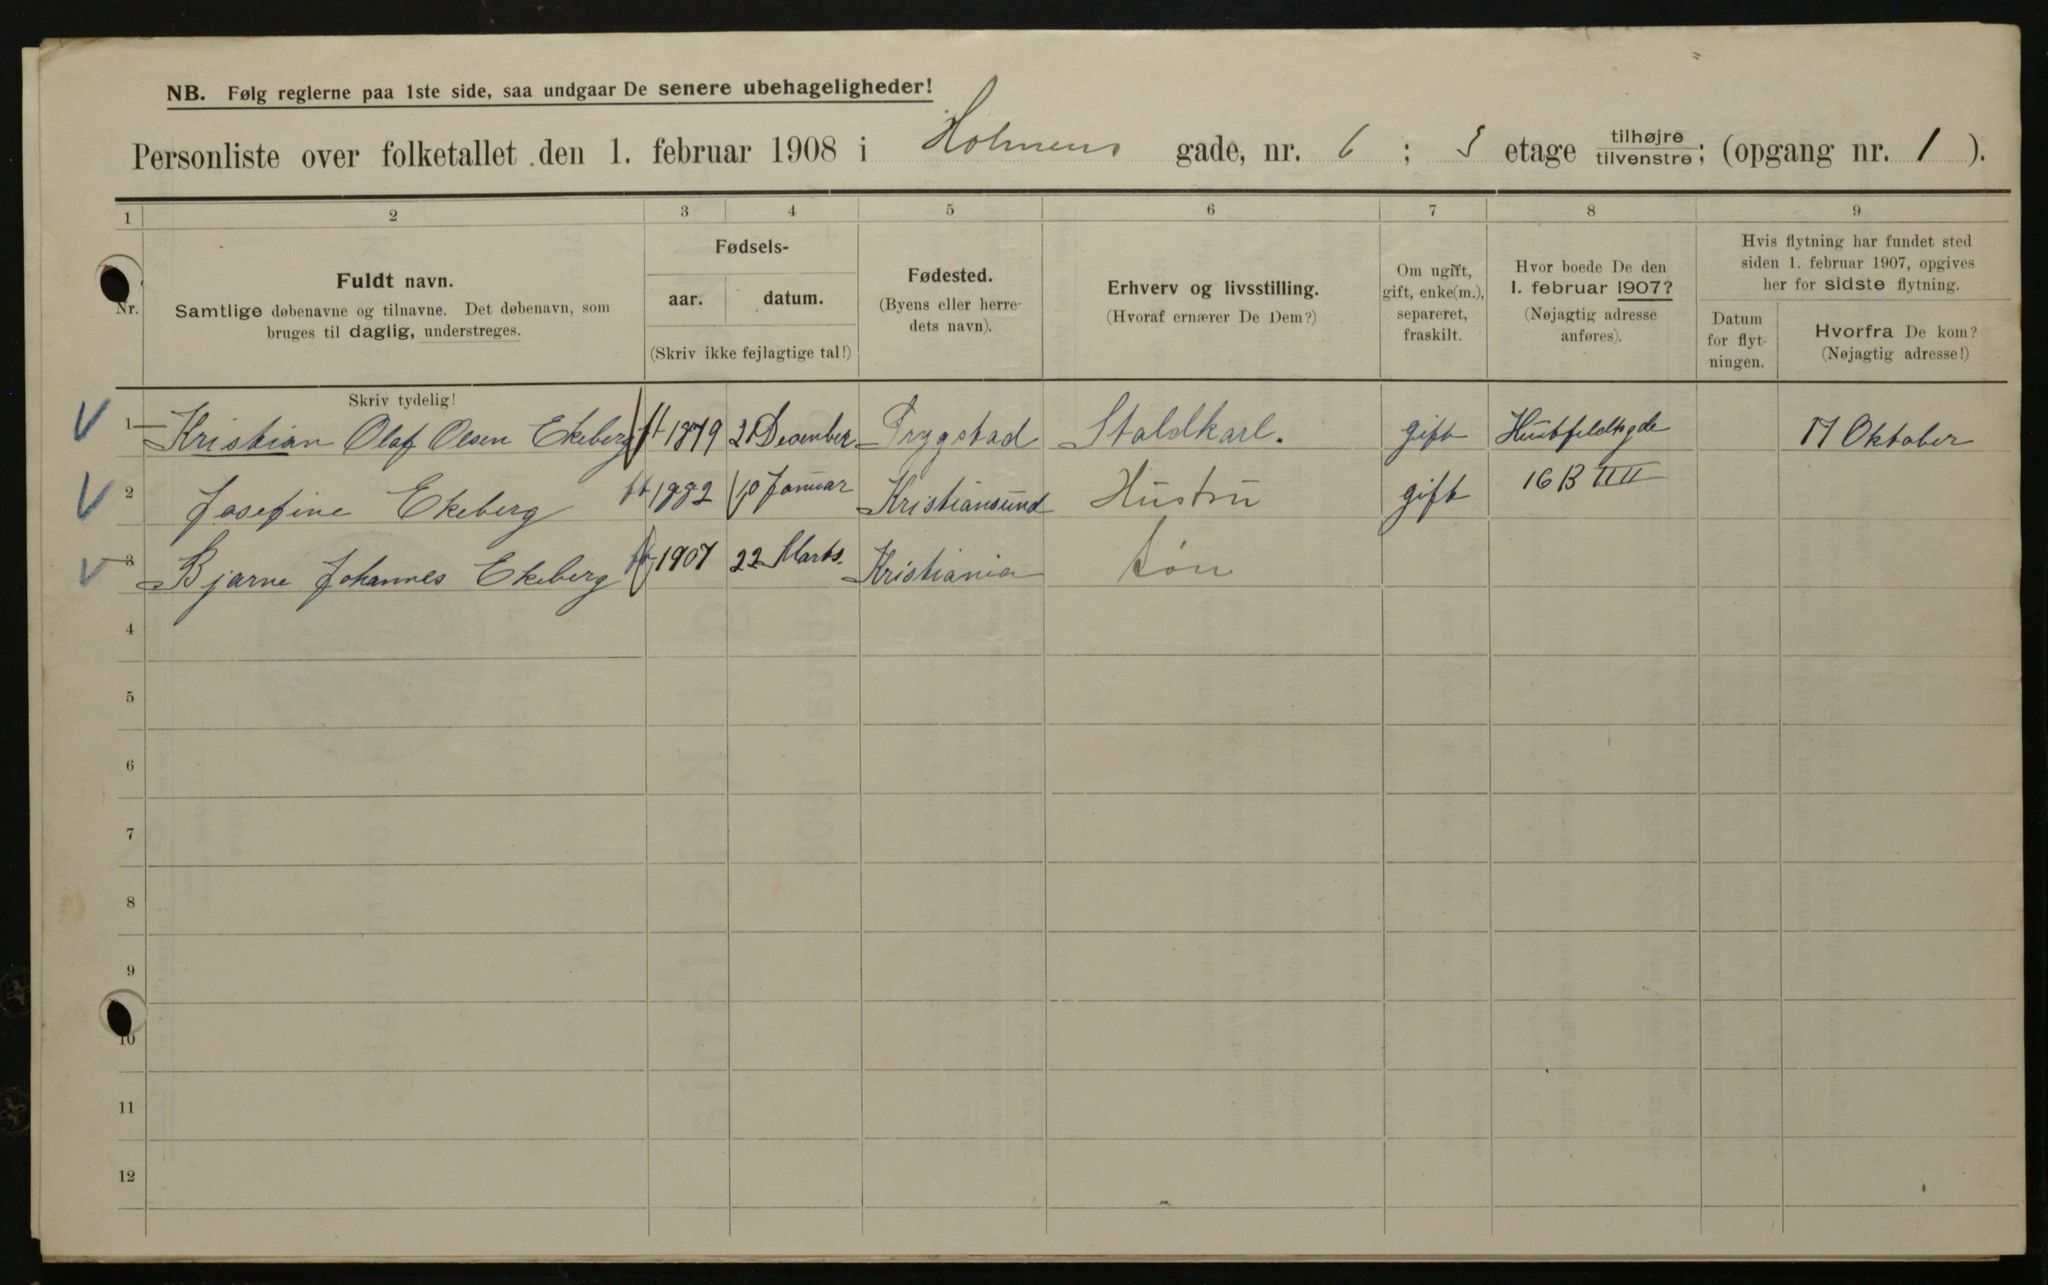 NB. Følg reglerne paa 1ste side, saa undgaar De senere ubehageligheder!
Personliste over folketallet den 1. februar 1908 i Holmens gade, nr. 6 ; 3 etage tilhøjre tilvenstre; (opgang nr. 1 ).
1 2 3 4 5 6 7 8 9
Nr.
Fuldt navn.
Samtlige døbenavne og tilnavne. Det døbenavn, som
bruges til daglig, understreges.
Skriv tydelig!
Fødsels-
aar. datum.
(Skriv ikke fejlagtige tal!)
Fødested.
(Byens eller herre-
dets navn).
Erhverv og livsstilling.
(Hvoraf ernærer De Dem?)
Om ugift,
gift, enke(m.),
separeret,
fraskilt.
Hvor boede De den
1. februar 1907?
(Nøjagtig adresse
anføres).
Hvis flytning har fundet sted
siden 1. februar 1907, opgives
her for sidste flytning.
Datum
for flyt-
ningen.
Hvorfra De kom?
(Nøjagtig adresse!)
1 Kristian Olaf Olsen Ekeberg 1879 21 December Trygstad Staldkarl. gift 17 Oktober
2 Josefine Ekeberg 1882 10 Januar Kristiansund Hustru gift 16 B
3 Bjarne Johannes Ekeberg 1907 22 Marts. Kristiania Søn
4
5
6
7
8
9
10
11
12